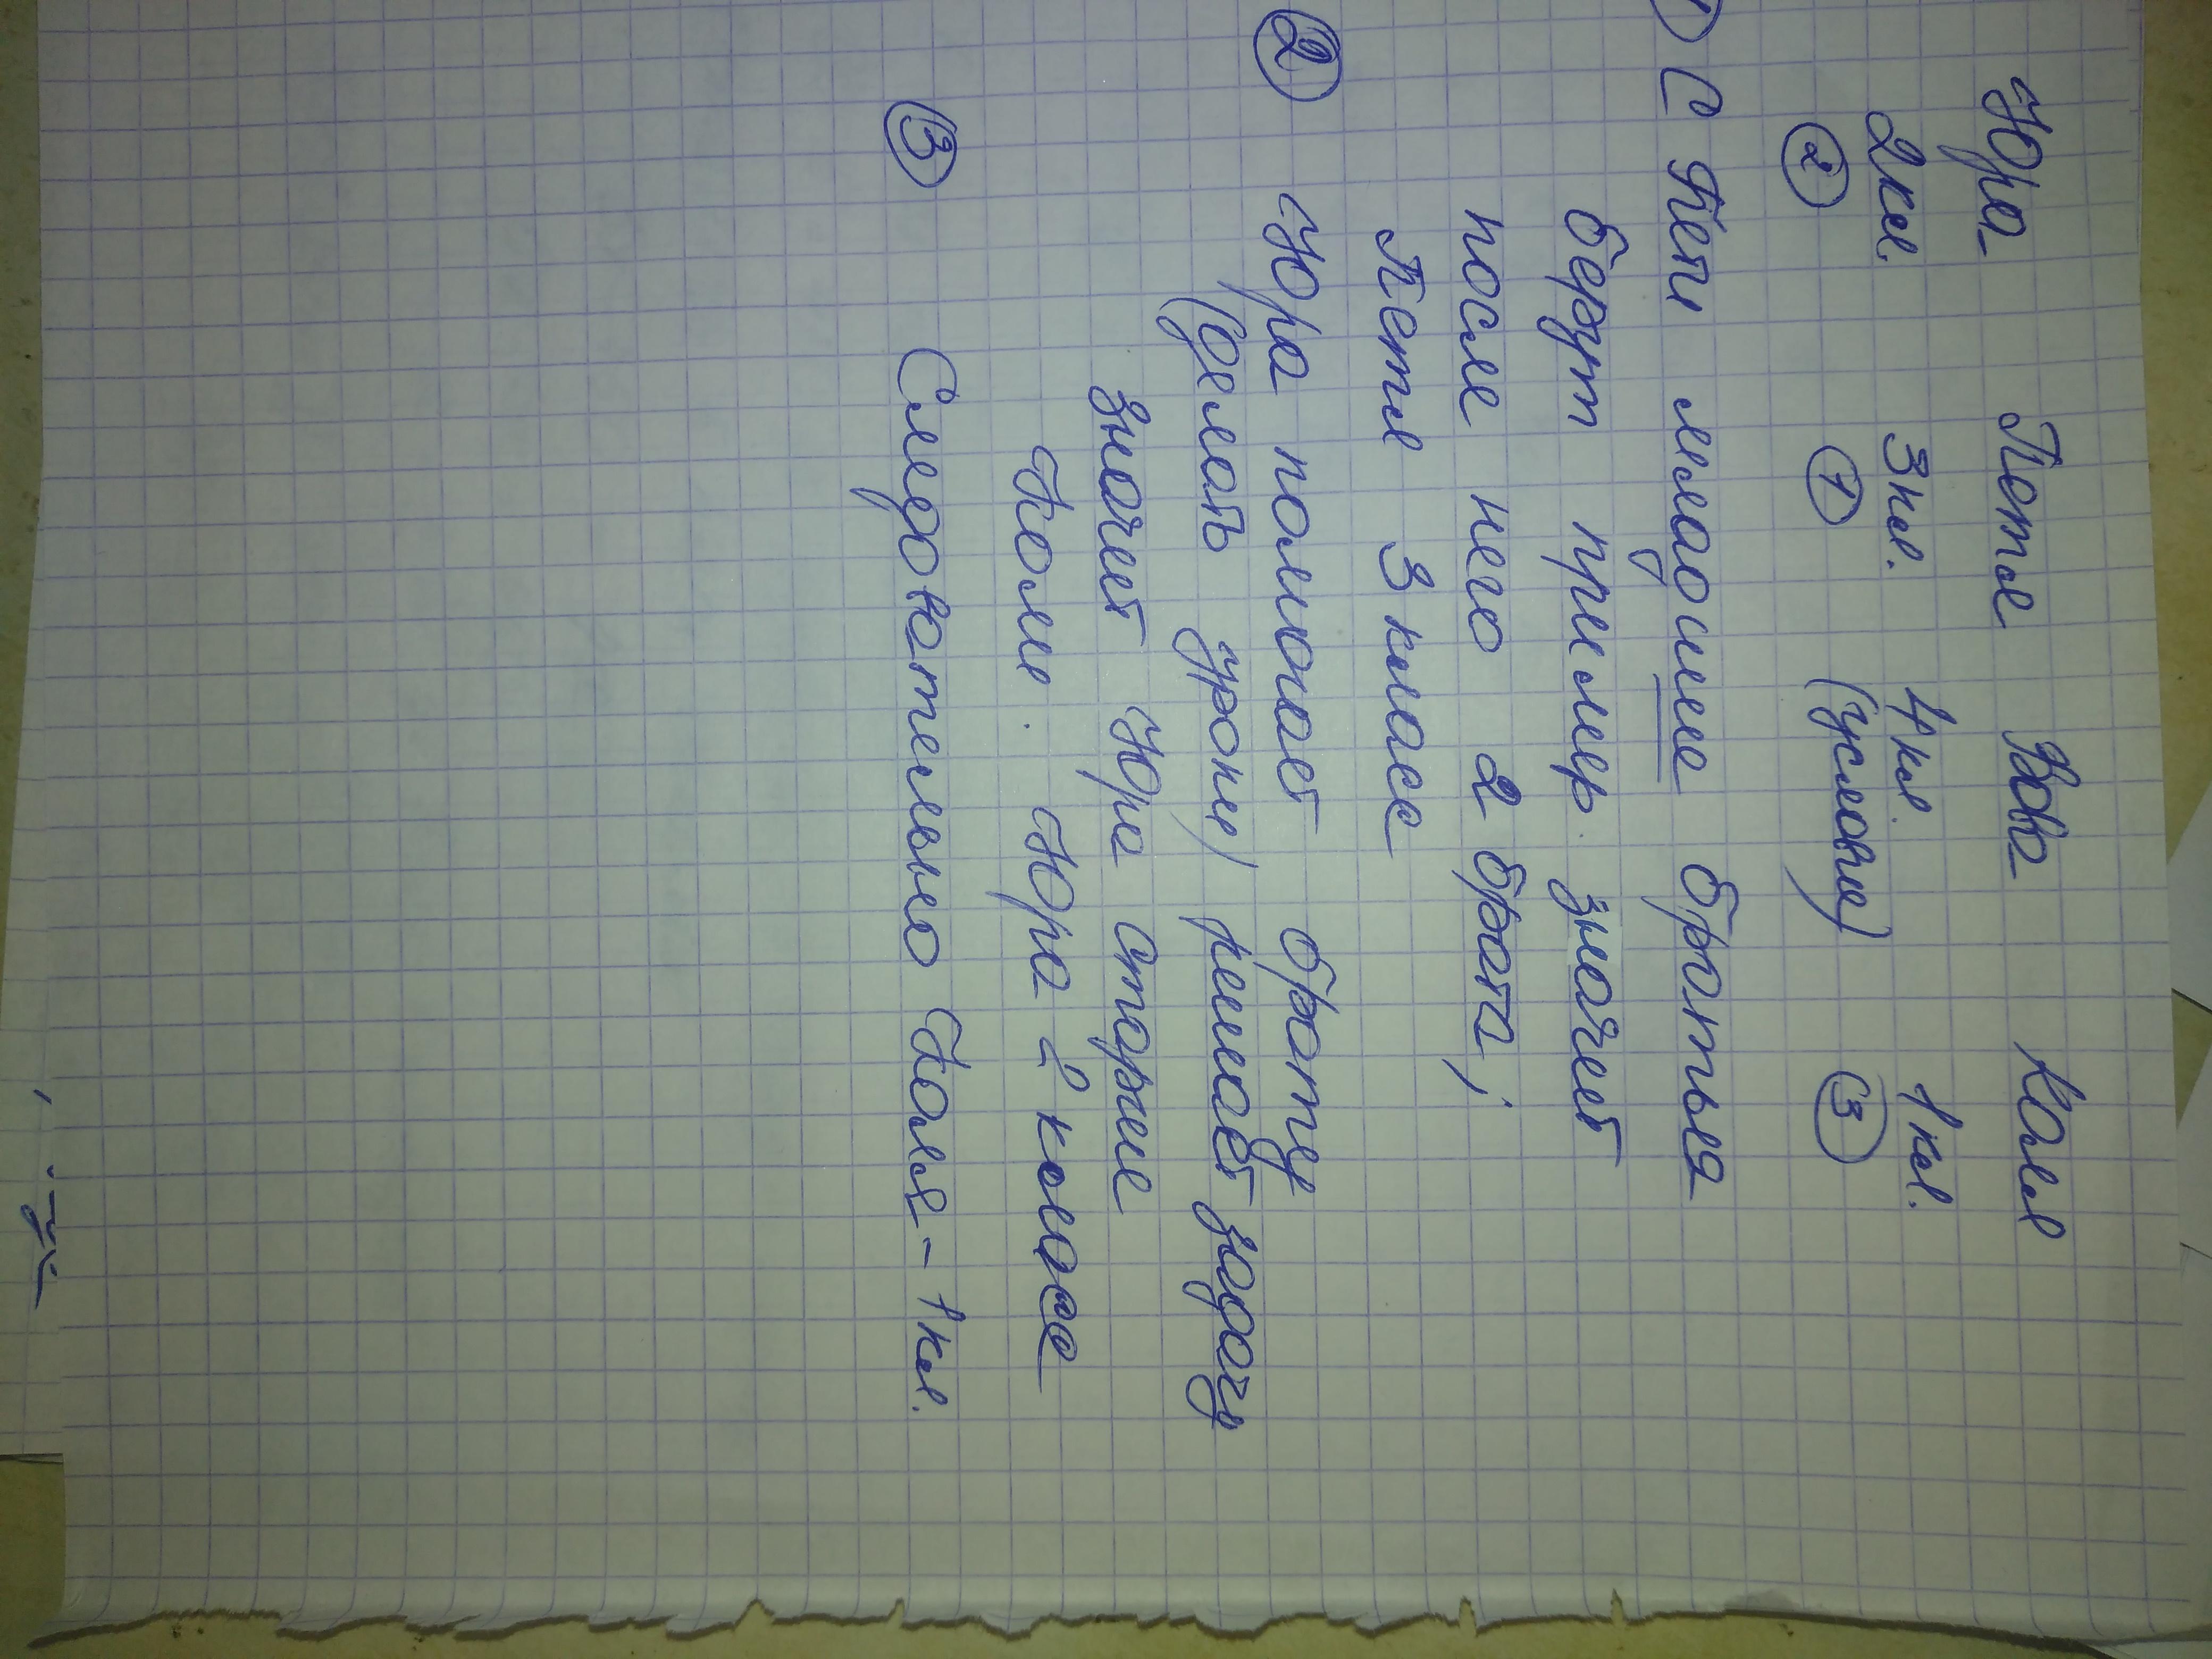 Юра Петя Вова Коля
2кл. 3кл. 4кл. 1кл.
② ① (условие) ③
① С Пети младшие братья
берут пример. значет
после него 2 брата;
Петя 3 класс
② Юра помогает брату
(делать уроки) решает задачу
значет Юра старше
Коли. Юра 2 класс
③ Следовательно Коля - 1кл.